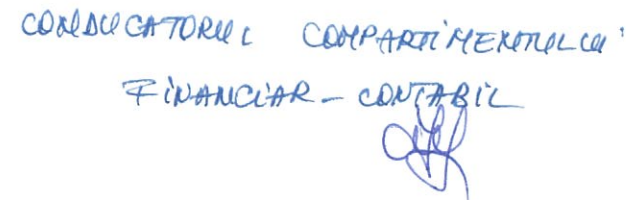 CONDUCATORUL COMPARTIMENTULUI
FINANCIAR - CONTABIL